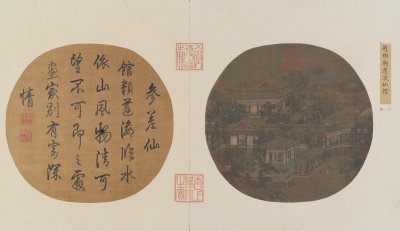 趙伯駒蓬瀛仙館
參差仙
館類蓬瀛臨水
依山風物清可
望不可即之處
畫家別有寄深
情